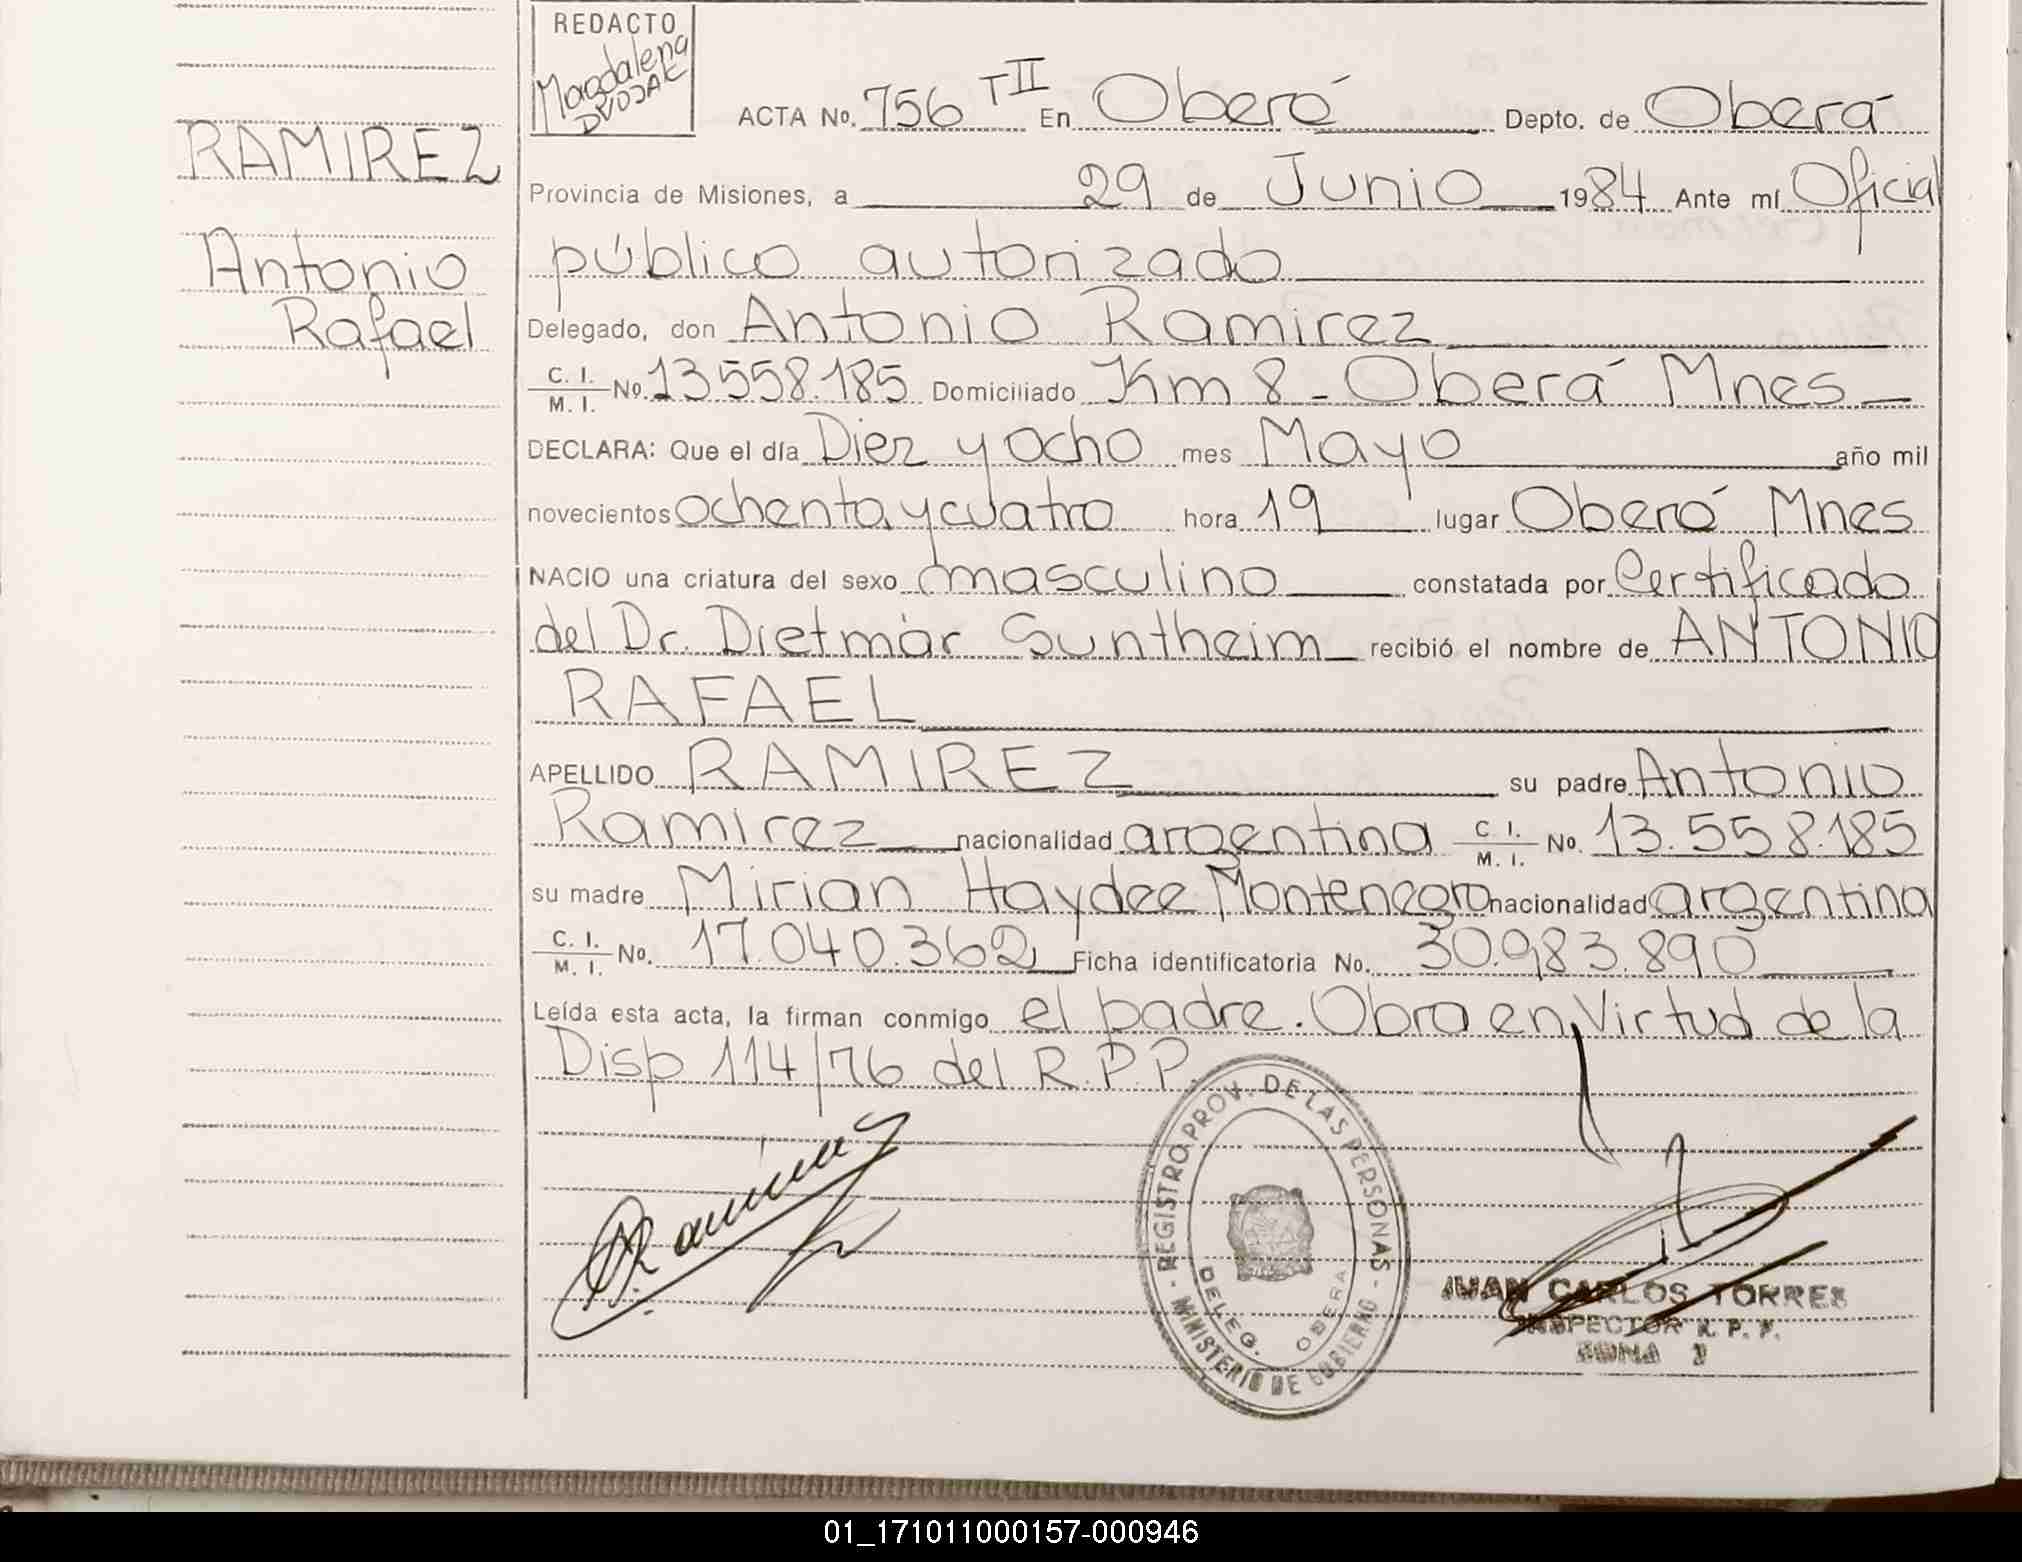 REDACTO
Magdalena
DVOJAK
RAMIREZ
Antonio
Rafael
ACTA No. 756 T II En Oberá Depto. de Oberá
Provincia de Misiones, a 29 de Junio 1984 Ante mí Oficial
público autorizado
Delegado, don Antonio Ramirez
C. I. / M. I. No. 13558.185 Domiciliado Km 8 - Oberá Mnes
DECLARA: Que el día Diez y ocho mes Mayo año mil
novecientos ochenta y cuatro hora 19 lugar Oberá Mnes
NACIO una criatura del sexo masculino constatada por Certificado
del Dr. Dietmar Suntheim recibió el nombre de ANTONIO
RAFAEL
APELLIDO RAMIREZ su padre Antonio
Ramirez nacionalidad argentina C. I. / M. I. No. 13.558.185
su madre Mirian Haydee Montenegro nacionalidad argentina
C. I. / M. I. No. 17.040.362 Ficha identificatoria No. 30.983.890
Leída esta acta, la firman conmigo el padre. Obra en Virtud de la
Disp 114/76 del R.P.P.
A. Ramirez
REGISTRO PROV. DE LAS PERSONAS
MINISTERIO DE GOBIERNO
DELEG. OBERA
JUAN CARLOS TORRES
INSPECTOR R. P. P.
ZONA
01_171011000157-000946